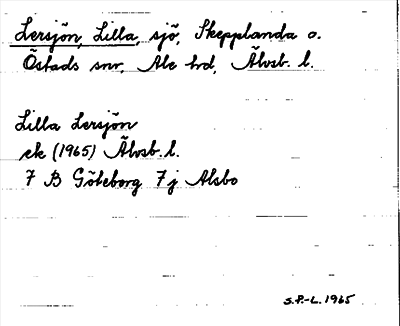 Lersjön, Lilla, sjö, Skepplanda o.
Östads snr, Ale hd, Älvsb. l.
Lilla Lersjön
ek (1965) Älvsb. l.
7 B Göteborg 7 j Alsbo
S.P.-L. 1965